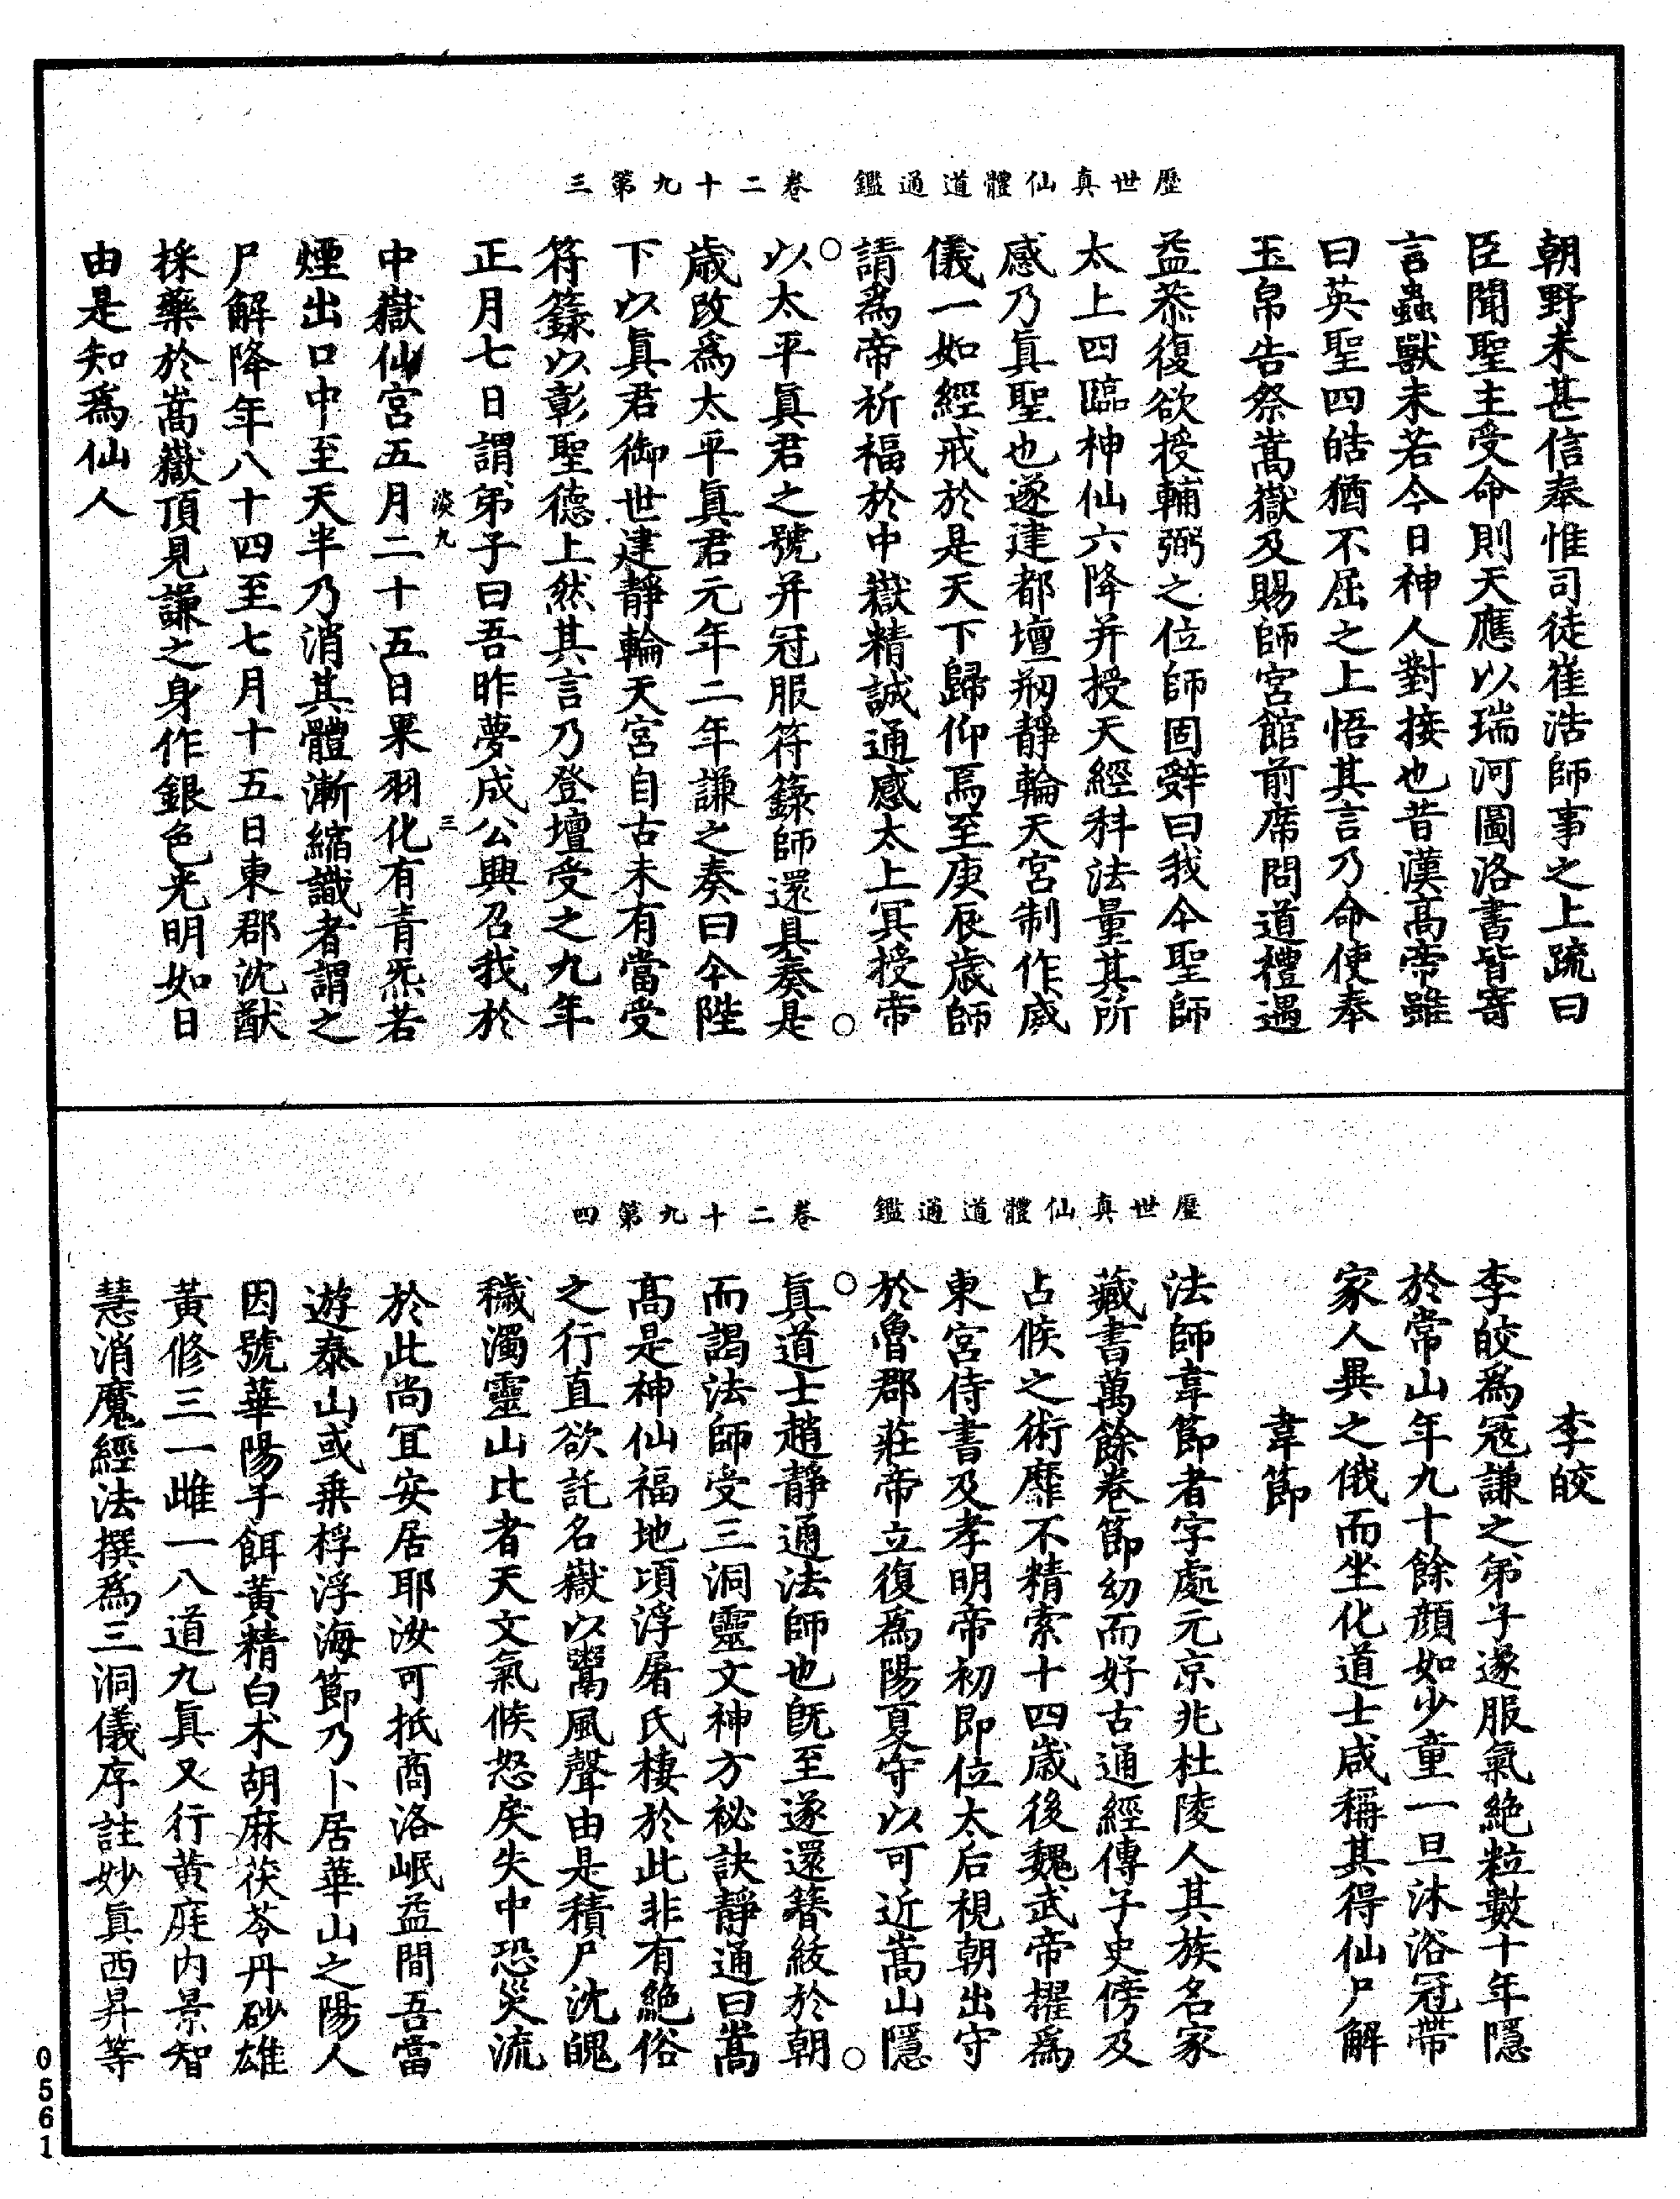 歷世真仙體道通鑑　卷二十九第三
朝野未甚信奉惟司徒崔浩師事之上疏曰
臣聞聖主受命則天應以瑞河圖洛書皆寄
言蟲獸未若今日神人對接也昔漢高帝雖
曰英聖四皓猶不屈之上悟其言乃命使奉
玉帛告祭嵩嶽及賜師宮館前席問道禮遇
益恭復欲授輔弼之位師固辤曰我今聖師
太上四臨神仙六降并授天經科法量其所
感乃眞聖也遂建都壇剏靜輪天宮制作威
儀一如經戒於是天下歸仰焉至庚辰歲師
請爲帝祈福於中嶽精誠通感太上冥授帝
以太平眞君之號并冠服符籙師還具奏是
歲改爲太平眞君元年二年謙之奏曰今陛
下以眞君御世建靜輪天宮自古未有當受
符籙以彰聖德上然其言乃登壇受之九年
正月七日謂弟子曰吾昨夢成公興召我於
淡九　三
中嶽仙宮五月二十五日果羽化有青炁若
煙出口中至天半乃消其體漸縮識者謂之
尸解降年八十四至七月十五日東郡沈猷
採藥於嵩嶽頂見謙之身作銀色光明如日
由是知爲仙人
歷世真仙體道通鑑　卷二十九第四
李皎
李皎爲寇謙之弟子遂服氣絶粒數十年隱
於常山年九十餘顔如少童一旦沐浴冠帶
家人異之俄而坐化道士咸稱其得仙尸解
韋節
法師韋節者字處元京兆杜陵人其族名家
藏書萬餘卷節幼而好古通經傳子史傍及
占候之術靡不精索十四歲後魏武帝擢爲
東宮侍書及孝明帝初即位太后視朝出守
於魯郡莊帝立復爲陽夏守以可近嵩山隱
眞道士趙靜通法師也旣至遂還簪紱於朝
而謁法師受三洞靈文神方祕訣靜通曰嵩
高是神仙福地頃浮屠氏棲於此非有絶俗
之行直欲託名嶽以鬻風聲由是積尸沈魄
穢濁靈山比者天文氣候怒戾失中恐災流
於此尚冝安居耶汝可抵商洛岷益間吾當
遊泰山或乗桴浮海節乃卜居華山之陽人
因號華陽子餌黃精白术胡麻茯苓丹砂雄
黃修三一雌一八道九眞又行黃庭内景智
慧消魔經法撰爲三洞儀序註妙眞西昇等
0561